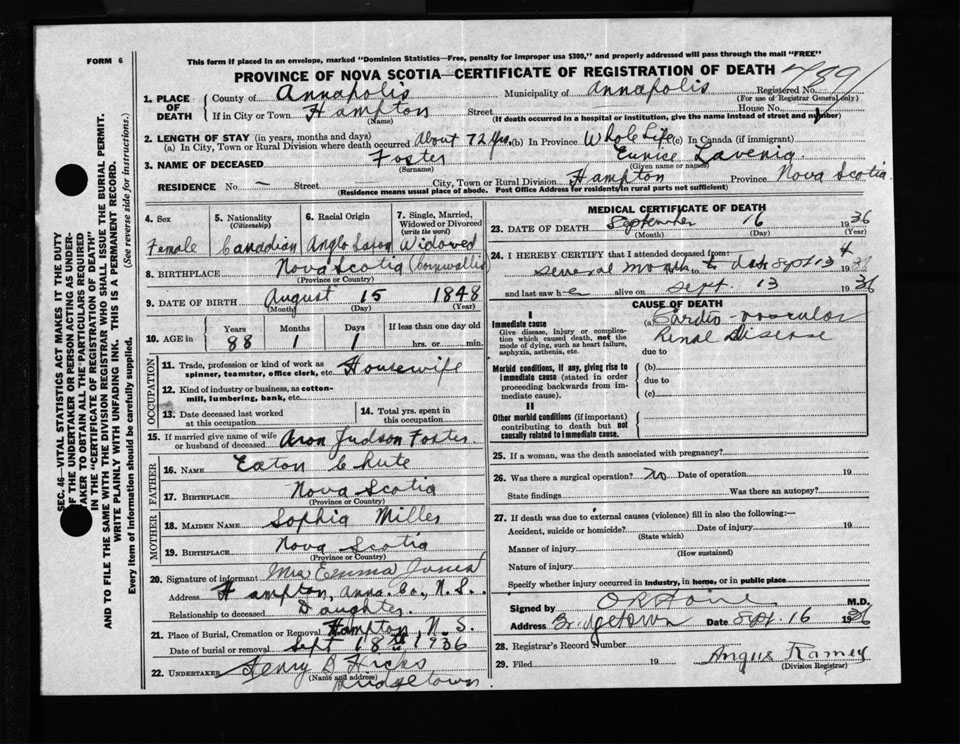 FORM 6
This form if placed in an envelope, marked "Dominion Statistics—Free, penalty for improper use $300," and properly addressed will pass through the mail "FREE"
PROVINCE OF NOVA SCOTIA—CERTIFICATE OF REGISTRATION OF DEATH
1. PLACE OF DEATH County of Annapolis Municipality of Annapolis Registered No.
(For use of Registrar General only)
If in City or Town Hampton Street House No.
(Name) (If death occurred in a hospital or institution, give the name instead of street and number)
2. LENGTH OF STAY (in years, months and days)
(a) In City, Town or Rural Division where death occurred About 72 Yrs. (b) In Province Whole Life (c) In Canada (if immigrant)
3. NAME OF DECEASED Foster Eunice Lavenia
(Surname) (Given name or names)
RESIDENCE No. — Street City, Town or Rural Division Hampton Province Nova Scotia
(Residence means usual place of abode. Post Office Address for residents in rural parts not sufficient)
4. Sex 5. Nationality (Citizenship) 6. Racial Origin 7. Single, Married, Widowed or Divorced (write the word)
Female Canadian Anglo Saxon Widowed
8. BIRTHPLACE Nova Scotia (Cornwallis)
(Province or Country)
9. DATE OF BIRTH August 15 1848
(Month) (Day) (Year)
10. AGE in Years Months Days If less than one day old
88 1 1 hrs. or min.
OCCUPATION
11. Trade, profession or kind of work as spinner, teamster, office clerk, etc. Housewife
12. Kind of industry or business, as cotton-mill, lumbering, bank, etc.
13. Date deceased last worked at this occupation 14. Total yrs. spent in this occupation
15. If married give name of wife or husband of deceased Aron Judson Foster
FATHER
16. NAME Eaton Chute
17. BIRTHPLACE Nova Scotia
(Province or Country)
MOTHER
18. MAIDEN NAME Sophia Miller
19. BIRTHPLACE Nova Scotia
(Province or Country)
20. Signature of informant Mrs Emma
Address Hampton, Anna. Co., N.S.
Relationship to deceased Daughter
21. Place of Burial, Cremation or Removal Hampton, N.S.
Date of burial or removal Sept 18th 1936
22. UNDERTAKER Henry B Hicks
(Name and address)
Bridgetown
MEDICAL CERTIFICATE OF DEATH
23. DATE OF DEATH September 16 1936
(Month) (Day) (Year)
24. I HEREBY CERTIFY that I attended deceased from:
several month to Sept 13 19
and last saw h e alive on Sept. 13 1936
CAUSE OF DEATH
I
Immediate cause (a) Cardio-vascular
Give disease, injury or complication which caused death, not the mode of dying, such as heart failure, asphyxia, asthenia, etc. Renal Disease
due to
Morbid conditions, if any, giving rise to immediate cause (stated in order proceeding backwards from immediate cause). (b)
due to
(c)
II
Other morbid conditions (if important) contributing to death but not causally related to immediate cause.
25. If a woman, was the death associated with pregnancy?
26. Was there a surgical operation? No Date of operation 19
State findings Was there an autopsy?
27. If death was due to external causes (violence) fill in also the following:—
Accident, suicide or homicide? Date of injury 19
(State which)
Manner of injury
(How sustained)
Nature of injury
Specify whether injury occurred in industry, in home, or in public place
Signed by M.D.
Address Bridgetown Date Sept. 16 1936
28. Registrar's Record Number
29. Filed 19 Angus Ramey
(Division Registrar)
SEC. 46—VITAL STATISTICS ACT MAKES IT THE DUTY
OF THE UNDERTAKER OR PERSON ACTING AS UNDERTAKER TO OBTAIN ALL THE PARTICULARS REQUIRED
IN THE "CERTIFICATE OF REGISTRATION OF DEATH"
AND TO FILE THE SAME WITH THE DIVISION REGISTRAR WHO SHALL ISSUE THE BURIAL PERMIT.
WRITE PLAINLY WITH UNFADING INK. THIS IS A PERMANENT RECORD.
Every item of Information should be carefully supplied. (See reverse side for instructions.)